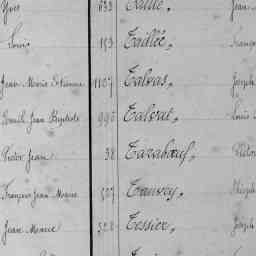 Yves 633 Taille, Jean
Louis 153 Taillée, Franço
Jean Marie Etienne 1107 Talvas, Joseph
Emile Jean Baptiste 996 Talvat, Louis
Victor Jean 38 Tarabœuf, Victor
François Jean Marie 527 Joseph
Jean Marie 522 Tessier, Joseph